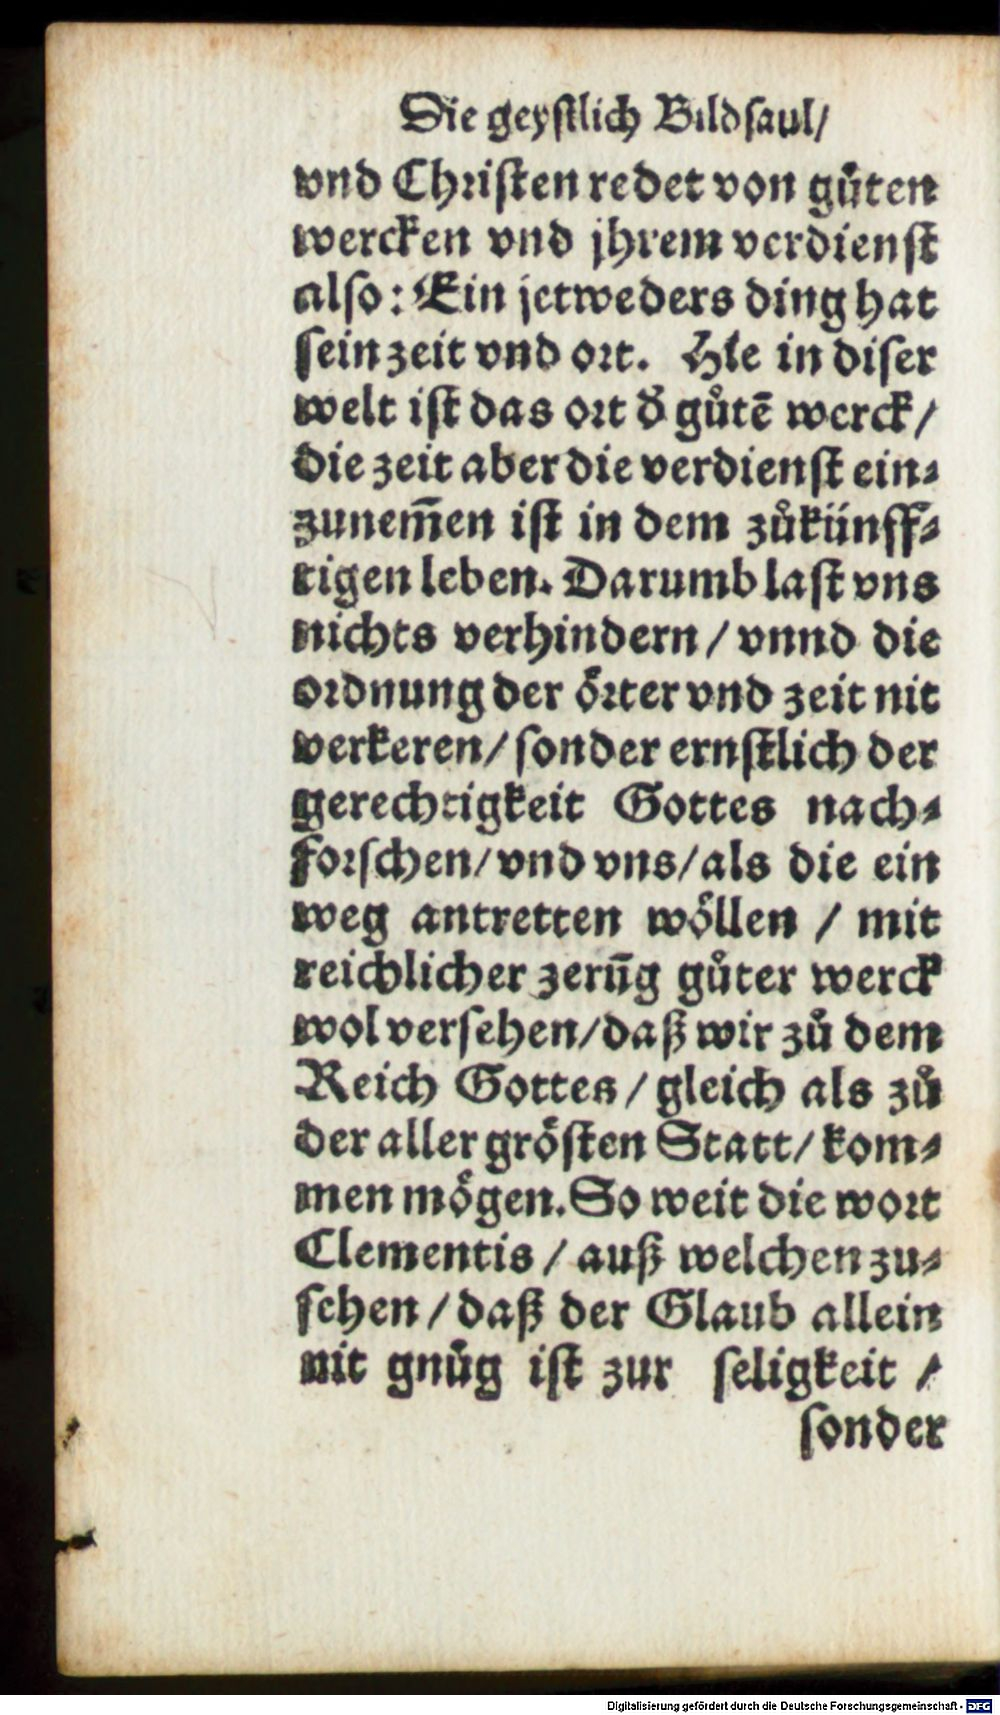 Die geyſtlich Bildſaul/
vnd Chꝛiſten redet von gůten
wercken vnd jhrem verdienſt
alſo: Ein jetweders ding hat
ſein zeit vnd oꝛt. Hie in diſer
welt iſt das oꝛt d̃ gůtē werck/
die zeit aber die verdienſt ein⸗
zunem̃en iſt in dem zůkünff⸗
tigen leben. Darumb laſt vns
nichts verhindern / vnnd die
oꝛdnung der oͤꝛter vnd zeit nit
verkeren/ ſonder ernſtlich der
gerechtigkeit Gottes nach⸗
foꝛſchen/ vnd vns/ als die ein
weg antretten woͤllen / mit
reichlicher zerūg gůter werck
wol verſehen/ daß wir zů dem
Reich Gottes / gleich als zů
der aller groͤſten Statt/ kom⸗
men moͤgen. So weit die woꝛt
Clementis / auß welchen zu⸗
ſehen / daß der Glaub allein
nit gnůg iſt zur ſeligkeit /
ſonder
Digitalisierung gefördert durch die Deutsche Forschungsgemeinschaft - DFG